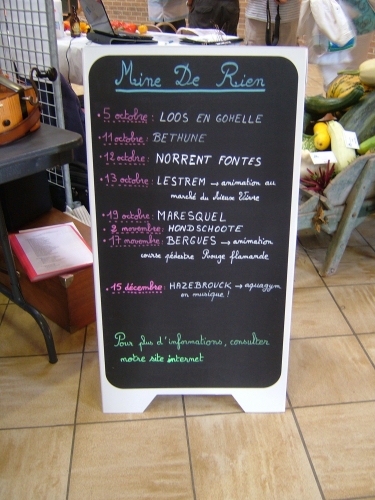 Mine De Rien
• 5 octobre : LOOS EN GOHELLE
• 11 octobre : BETHUNE
• 12 octobre : NORRENT FONTES
• 13 octobre : LESTREM → animation au
marché du Vieux Vivre
• 19 octobre : MARESQUEL
• 2 novembre : HONDSCHOOTE
• 17 novembre : BERGUES → animation
course pédestre Rouge flamande
• 15 décembre : HAZEBROUCK → aquagym
en musique !
Pour plus d'informations, consulter
notre site internet